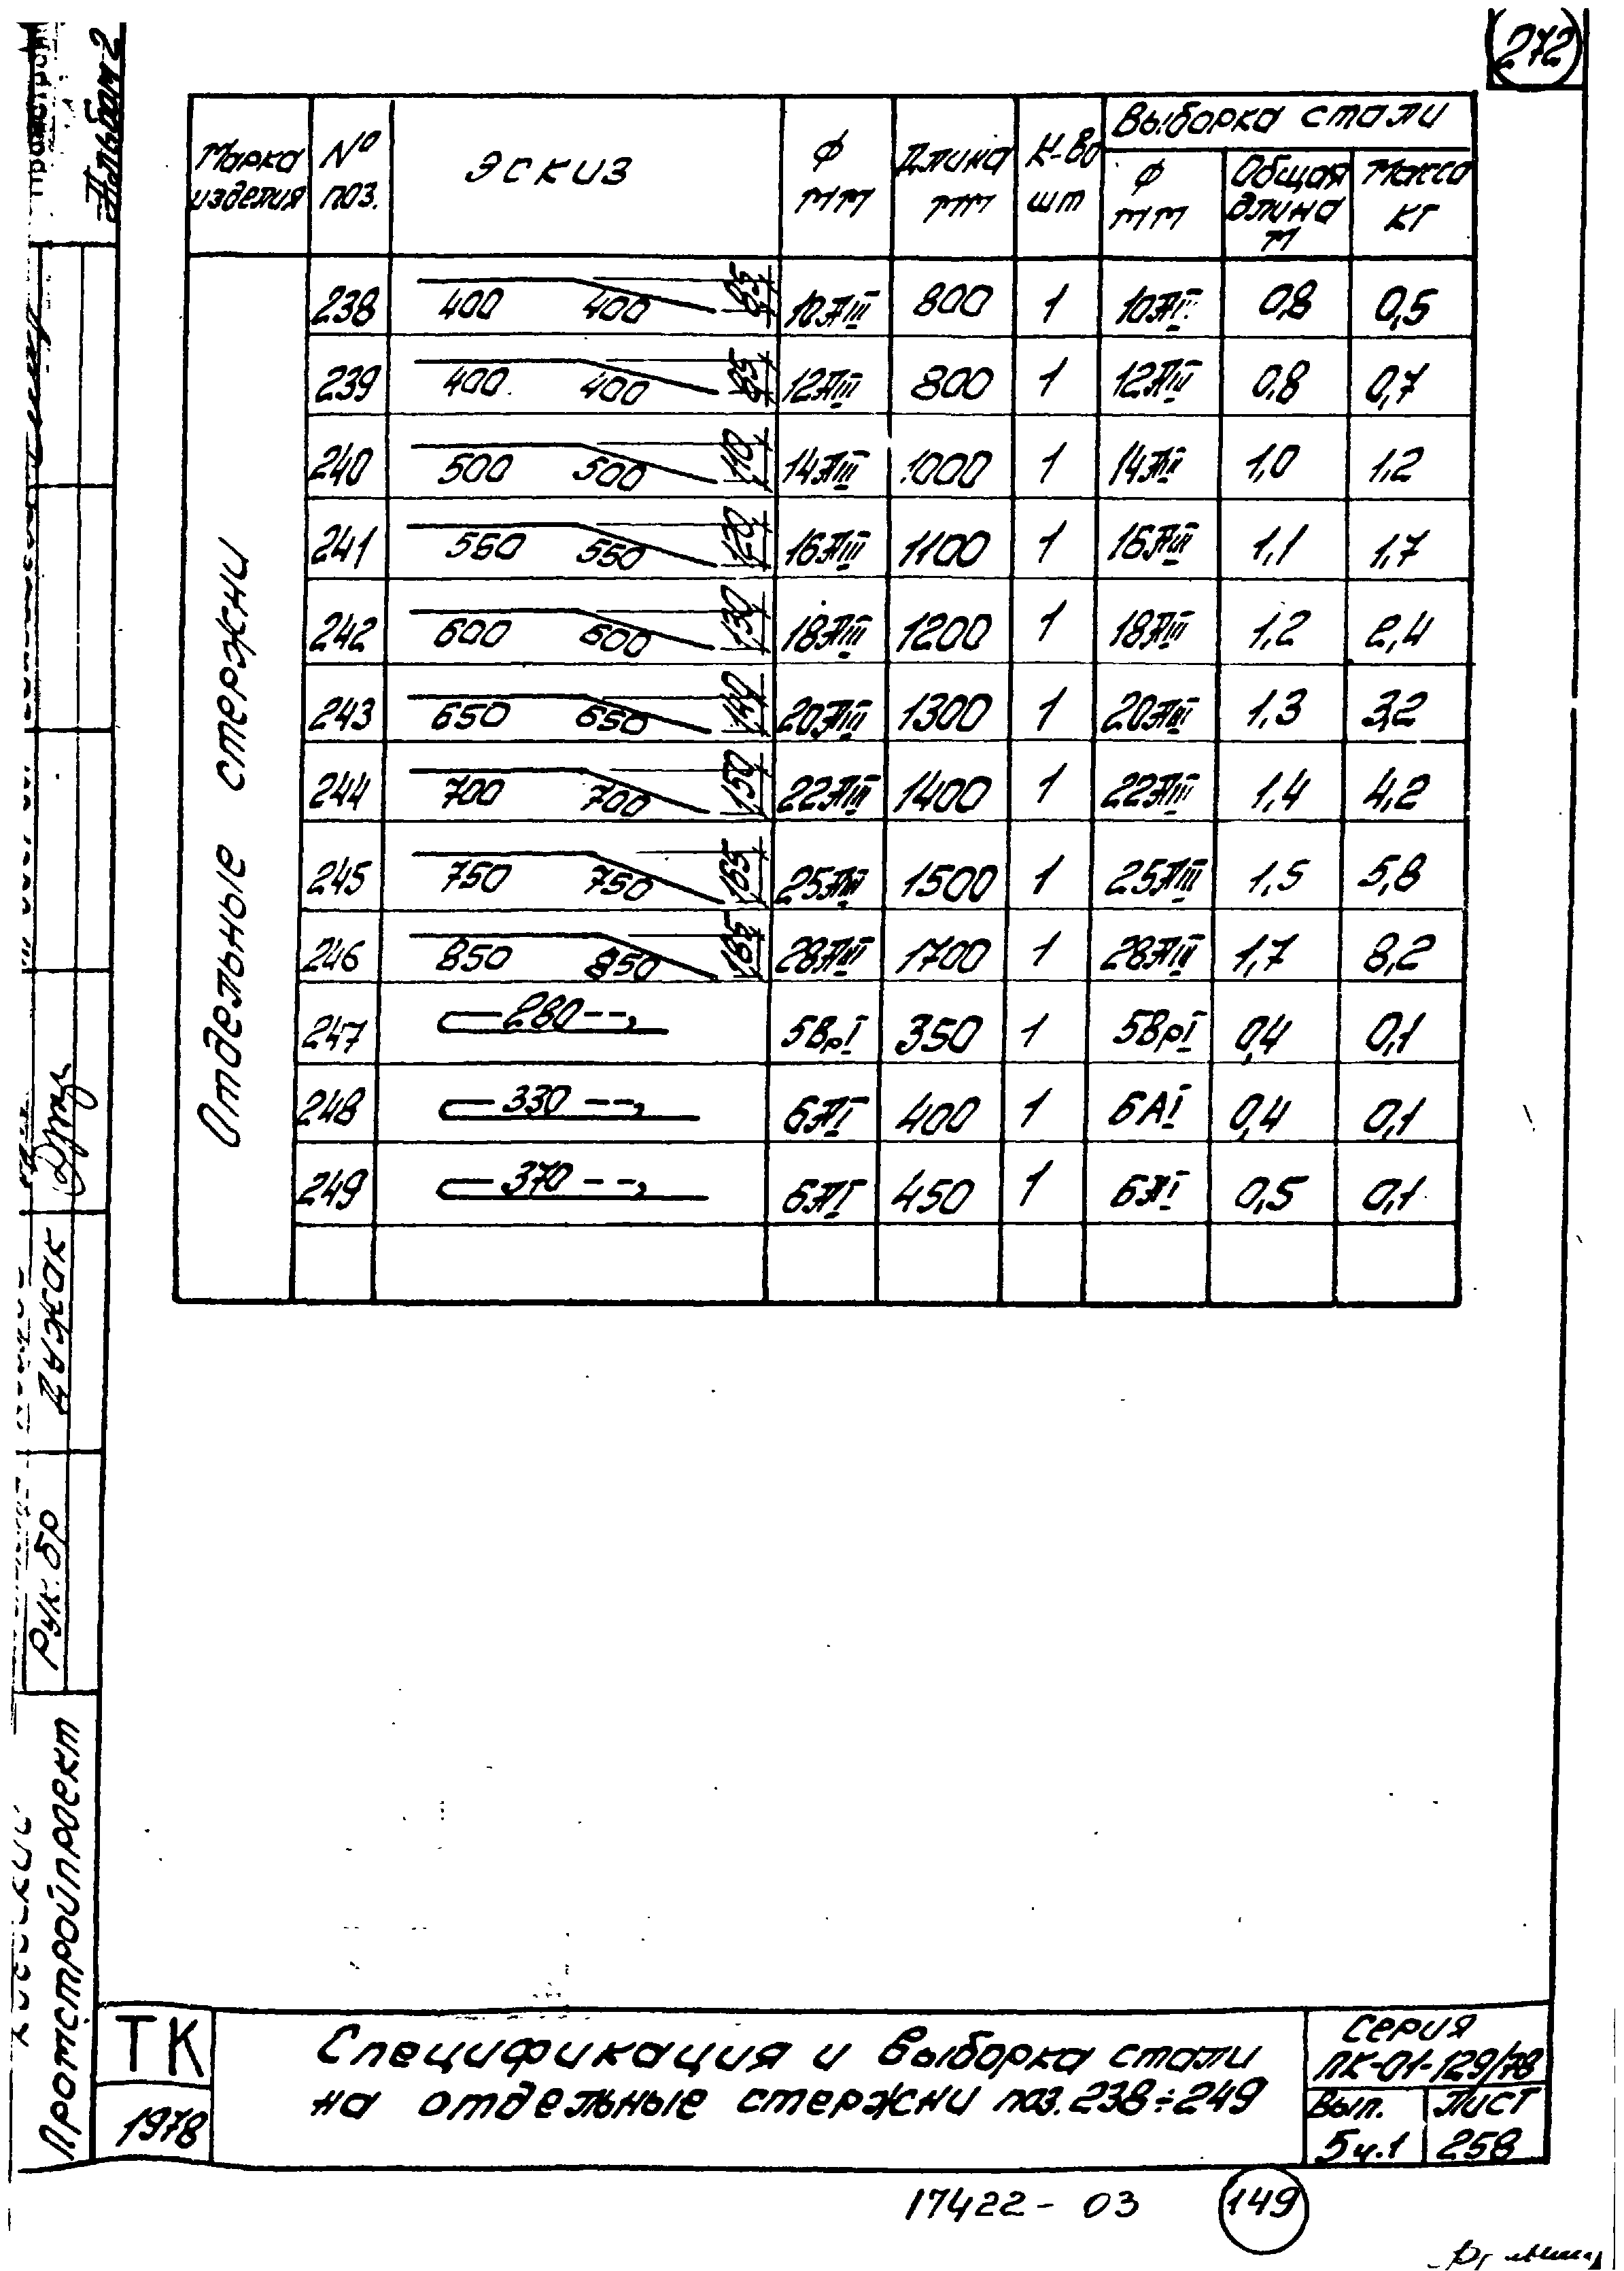 272
Альбом 2
Марка изделия № поз. Эскиз Ф мм Длина мм К-во шт Выборка стали
Ф мм Общая длина м Масса кг
Отдельные стержни
238 400 400 85 10АIII 800 1 10АIII 0,8 0,5
239 400 400 85 12АIII 800 1 12АIII 0,8 0,7
240 500 500 110 14АIII 1000 1 14АIII 1,0 1,2
241 550 550 120 16АIII 1100 1 16АIII 1,1 1,7
242 600 600 130 18АIII 1200 1 18АIII 1,2 2,4
243 650 650 140 20АIII 1300 1 20АIII 1,3 3,2
244 700 700 150 22АIII 1400 1 22АIII 1,4 4,2
245 750 750 165 25АIII 1500 1 25АIII 1,5 5,8
246 850 850 185 28АIII 1700 1 28АIII 1,7 8,2
247 280 5ВрI 350 1 5ВрI 0,4 0,1
248 330 6АI 400 1 6АI 0,4 0,1
249 370 6АI 450 1 6АI 0,5 0,1
Рук. бр
Промстройпроект
ТК
1978
Спецификация и выборка стали
на отдельные стержни поз. 238÷249
Серия
ПК-01-129/78
Вып. Лист
5ч.1 258
17422-03 149